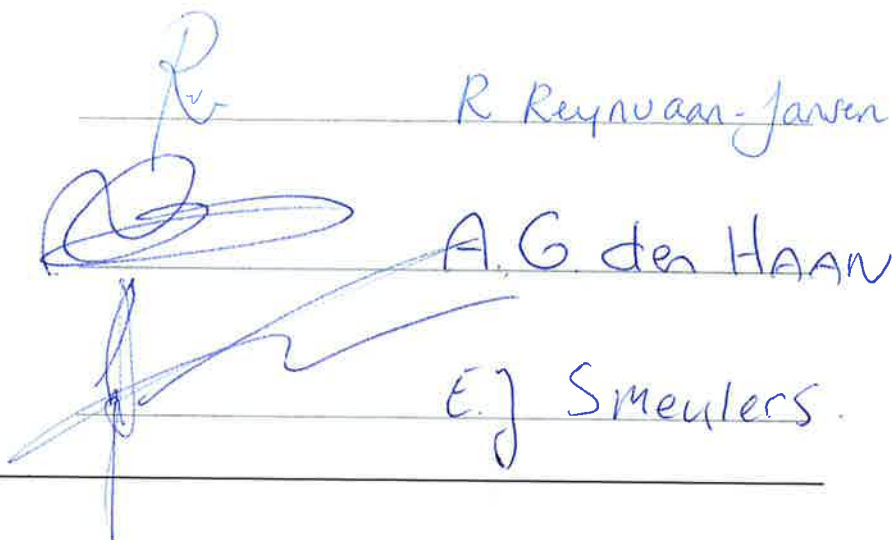 R Reynvaan-Jansen
A.G. den HAAN
E.J Smeulers.